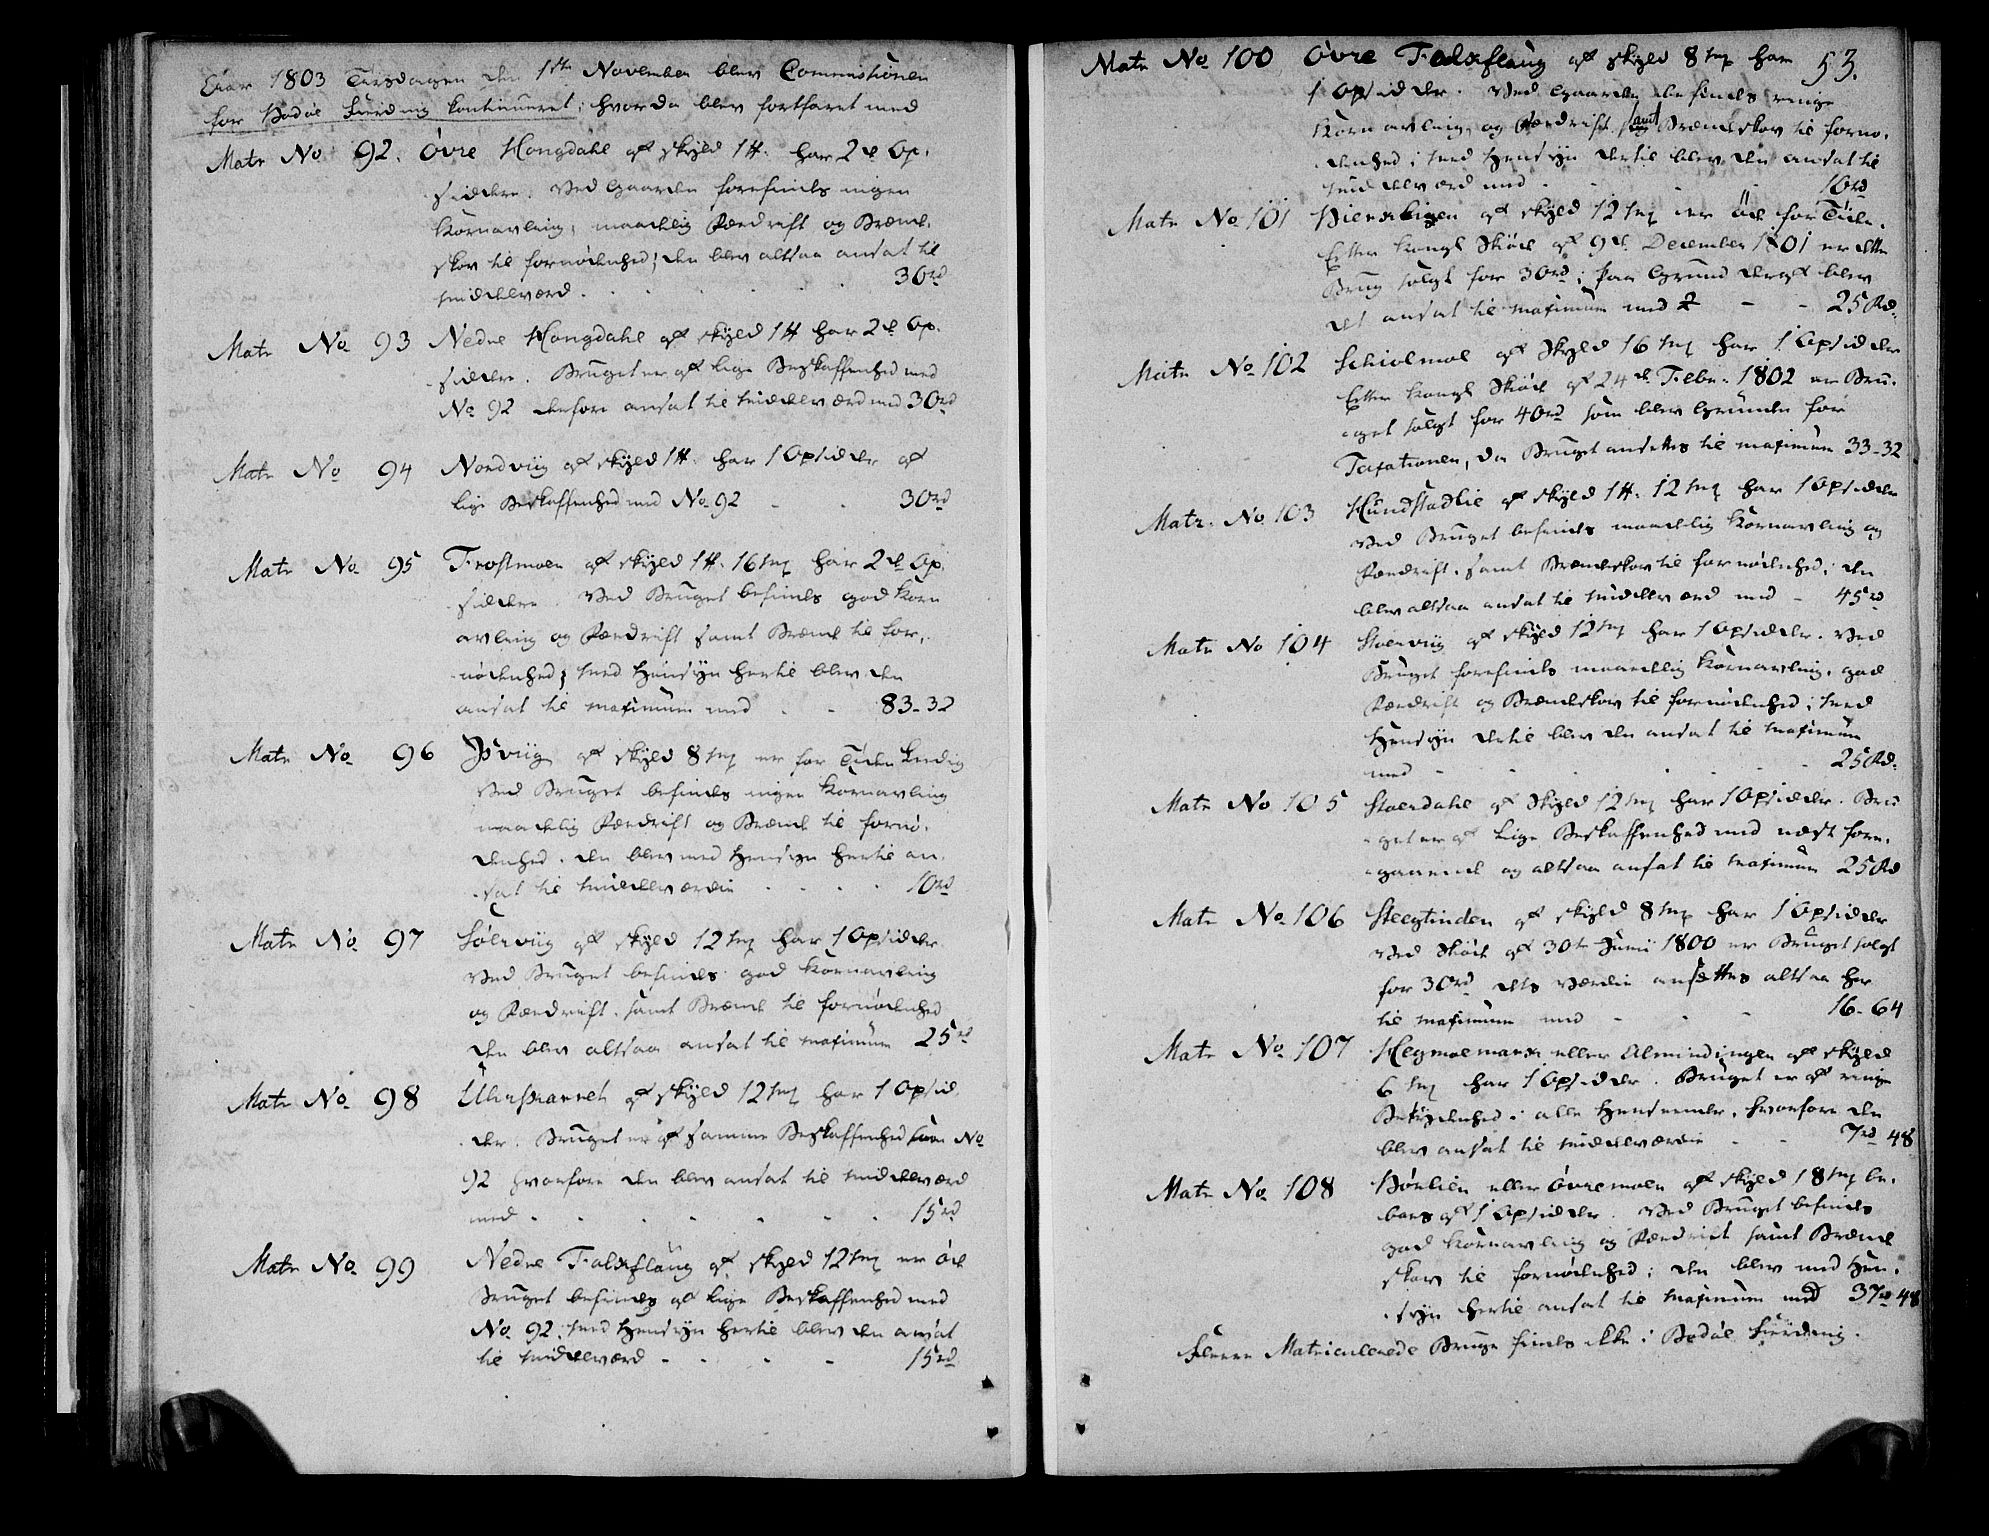 Aar 1803 Tirsdagen den 1ste November blev Commissionen
for Bodøe Fierding Continueret; hvorda blev fortfaret med
Matr No 92. Øvre Kongdahl af skyld 1 ℔. har 2de Op-
siddere. Ved Gaarden forefindes ingen
Kornavling, maadelig Fædrift og Brænde-
skov til fornødenhed; den blev altsaa ansat til
Middelværd. 30rd
Matr No 93 Nedre Kongdahl af skyld 1 ℔ har 2de Op-
siddere. Bruget er af lige Beskaffenhed med
No 92 derfore ansat til Middelværd med 30rd
Matr No 94 Nordviig af skyld 1 ℔. har 1 Opsidder af
lige Beskaffenhed med No 92 - 30rd
Matr No 95 Frostmoen af skyld 1 ℔. 16 m℔ har 2de Op-
siddere. Ved Bruget befindes god Korn
avling og Fædrift samt Brænde til for-
nødenhed; Med Hensyn hertil blev den
ansat til Maximum med - 83-32
Matr No 96 Isviig af skyld 8 m℔ er for Tiden Ledig
Ved Bruget befindes ingen Kornavling
maadelig Fædrift og Brænde til fornø-
denhed. den blev med Hensyn hertil an-
sat til Middelværdie 10rd
Matr No 97 Sølvviig af skyld 12 m℔ har 1 Opsidder
Ved Bruget befindes god Kornavling
og Fædrift. samt Brænde til fornødenhed
den blev altsaa ansat til Maximum 25rd
Matr No 98 af skyld 12 m℔ har 1 Opsid-
der. Bruget er af samme Beskaffenhed som No
92 hvorfore den blev ansat til Middelværd
med - 15rd
Matr No 99 Nedre Falkflaug af skyld 12 m℔ er øde
Bruget befindes af lige Beskaffenhed med
No 92. Med Hensyn hertil blev den ansat
til Middelværd - 15rd
53.
Matr No 100 Øvre Falkflaug af skyld 8 m℔ har
1 Opsidder. Ved Gaarden befindes ringe
Kornavling og Fædrift samt Brændeskov til fornø-
denhed; Med Hensyn dertil blev den ansat til
Middelværd med 10rd
Matr No 101 af skyld 12 m℔ er Øde for Tiden.
Efter Kongl Skiøde af 9de December 1801 er dette
Brug solgt for 30rd; paa Grund deraf blev
det ansat til Maximum med - 25 Rd.
Matr No 102 Schiolmoe af Skyld 16 m℔ har 1 Opsidder
Efter Kongl Skiøde af 24de Febr. 1802 er Bru-
get solgt for 40rd som blev Grunden for
Taxationen, da Bruget ansættes til Maximum 33-32
Matr. No 103 Hundstadlie af skyld 1 ℔. 12 m℔ har 1 Opsidder
Ved Bruget befindes maadelig Kornavling og
Fædrift. samt Brændeskov til fornødenhed; den
blev altsaa ansat til Middelværd med - 45rd
Matr No 104 Stoerviig af skyld 12 m℔ har 1 Opsidder. Ved
Bruget forefindes maadelig Kornavling, god
Fædrift og Brændeskov til fornødenhed; Med
Hensyn dertil blev den ansat til Maximum
med - 25 Rd.
Matr No 105 Stoerdahl af Skyld 12 m℔ har 1 Opsidder. Bru
get er af lige Beskaffenhed med næst fore-
gaaende og altsaa ansat til Maximum 25 Rd
Matr No 106 Steegtinden af skyld 8 m℔ har 1 Opsidder
Ved Skiøde af 30te Junii 1800 er Bruget solgt
for 30rd dets Værdie ansættes altsaa her
til Maximum med - 16-64
Matr No 107 Hegmoemark eller Almindingen af skyld
6 m℔ har 1 Opsidder. Bruget er af ringe
Betydenhed i alle Henseender, hvorfore den
blev ansat til Middelværdie - 7rd 48
Matr No 108 Børlien eller Øvremoen af skyld 18 m℔ be-
boes af 1 Opsidder. Ved Bruget befindes
god Kornavling og Fædrift samt Brænde
skov til fornødenhed; den blev med Hen-
syn hertil ansat til Maximum med 37rd 48
Fleere Matriculerede Bruge findes ikke i Bodøe Fierding.